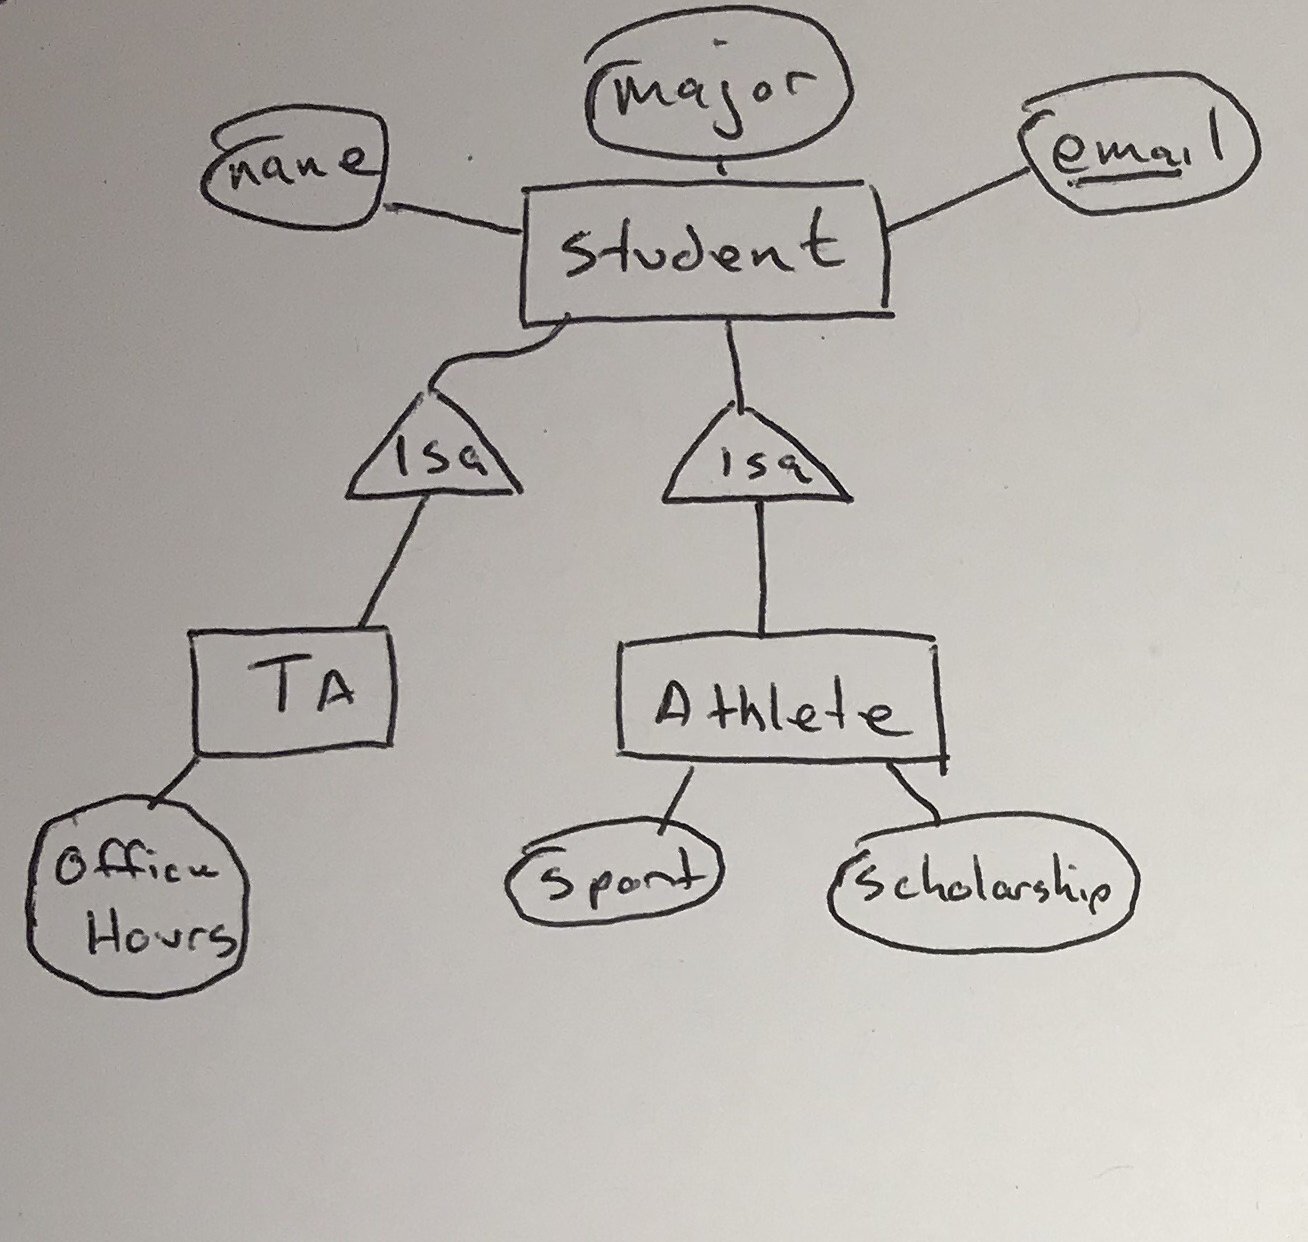 major
name
email
student
Isa
isa
TA
Athlete
Office
Hours
Sport
Scholarship